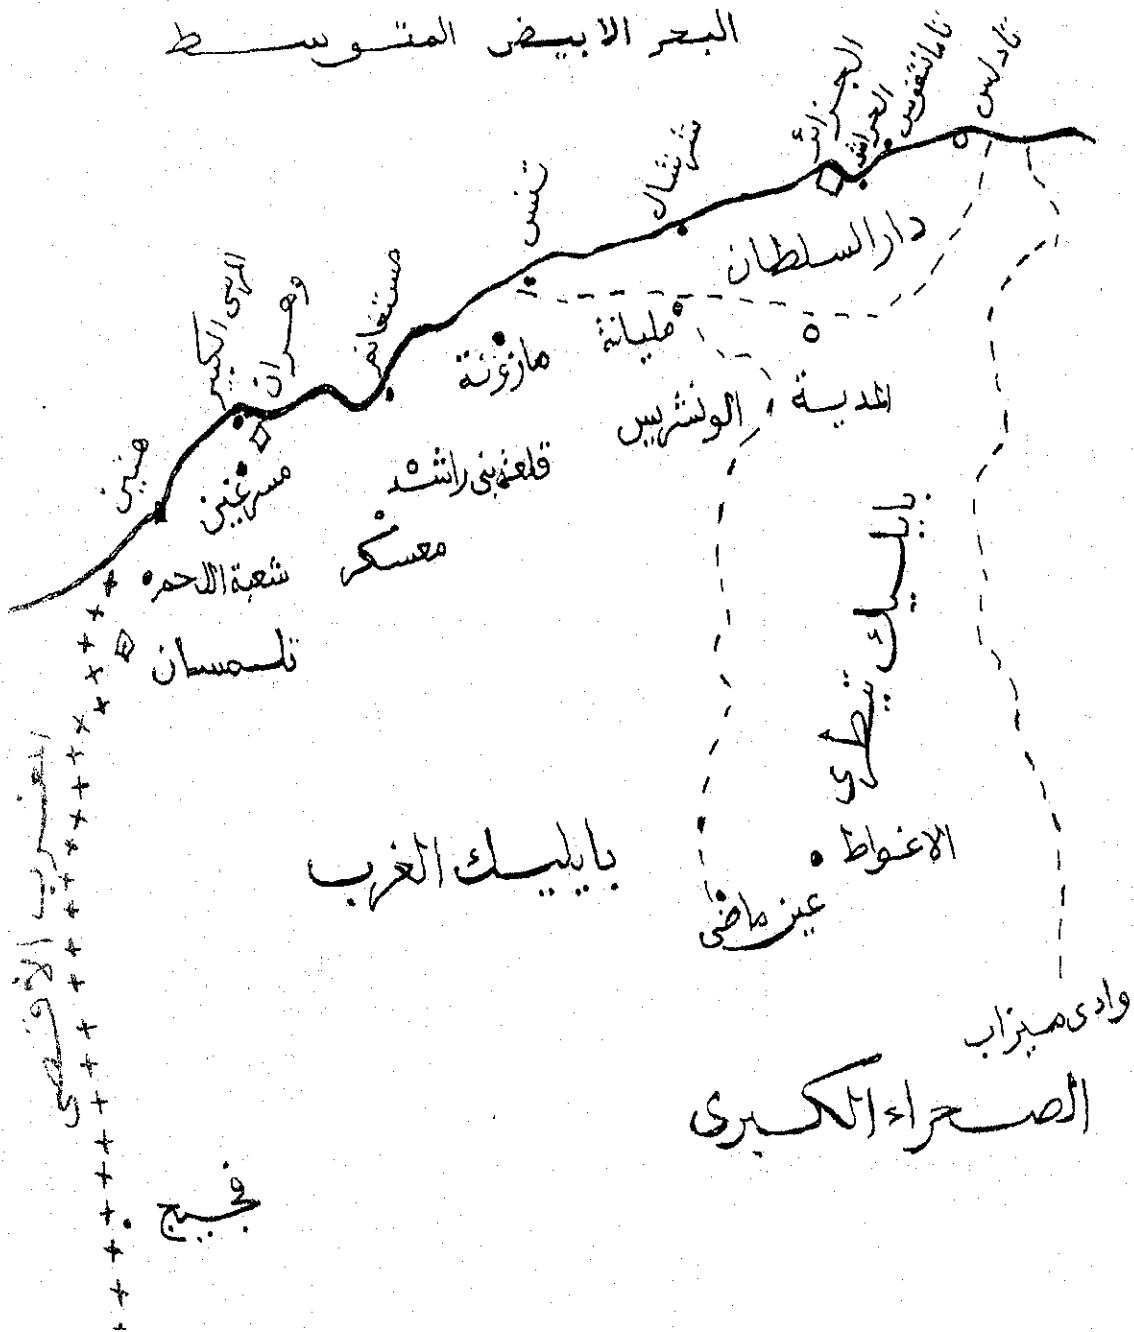 البحر الابيض المتوسط
تادلس
تامانتفوس
الحراش
الجزائر
شرشال
تنس
دار السلطان
مستغانم
وهران
المرسى الكبير
هنين
مليانة
مازونة
المدية
الونشريس
قلعة بني راشد
مسرغين
معسكر
شعبة اللحم
تلمسان
بايليك تيطري
المغرب الأقصى
بايليك الغرب
الاغواط
عين ماضي
وادى ميزاب
الصحراء الكبرى
فجيج